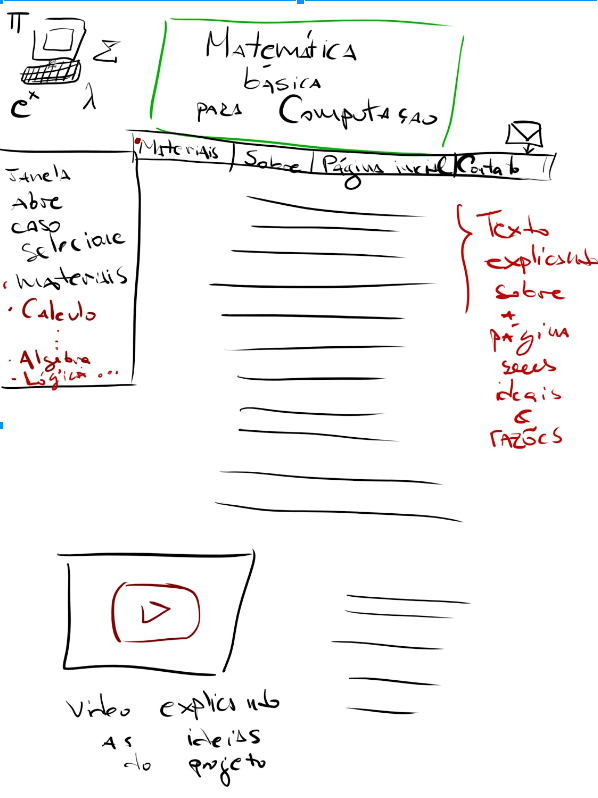 π
Σ
e^x
λ
Matemática
básica
para Computação
Materiais | Sobre | Página inicial | Contato
Janela
Abre
caso
selecione
materiais
• Calculo
⋮
• Algebra
• Lógica ...
Texto
explicando
sobre
a
página
seus
ideais
e
razões
Video explicando
As ideias
do projeto